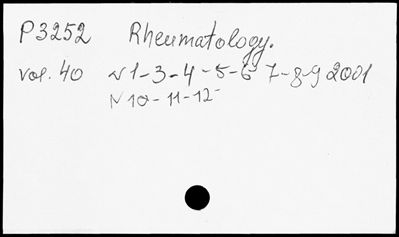 P3252 Rheumatology.
vol. 40 N1-3-4-5-6 7-8-9 2001
N10-11-12